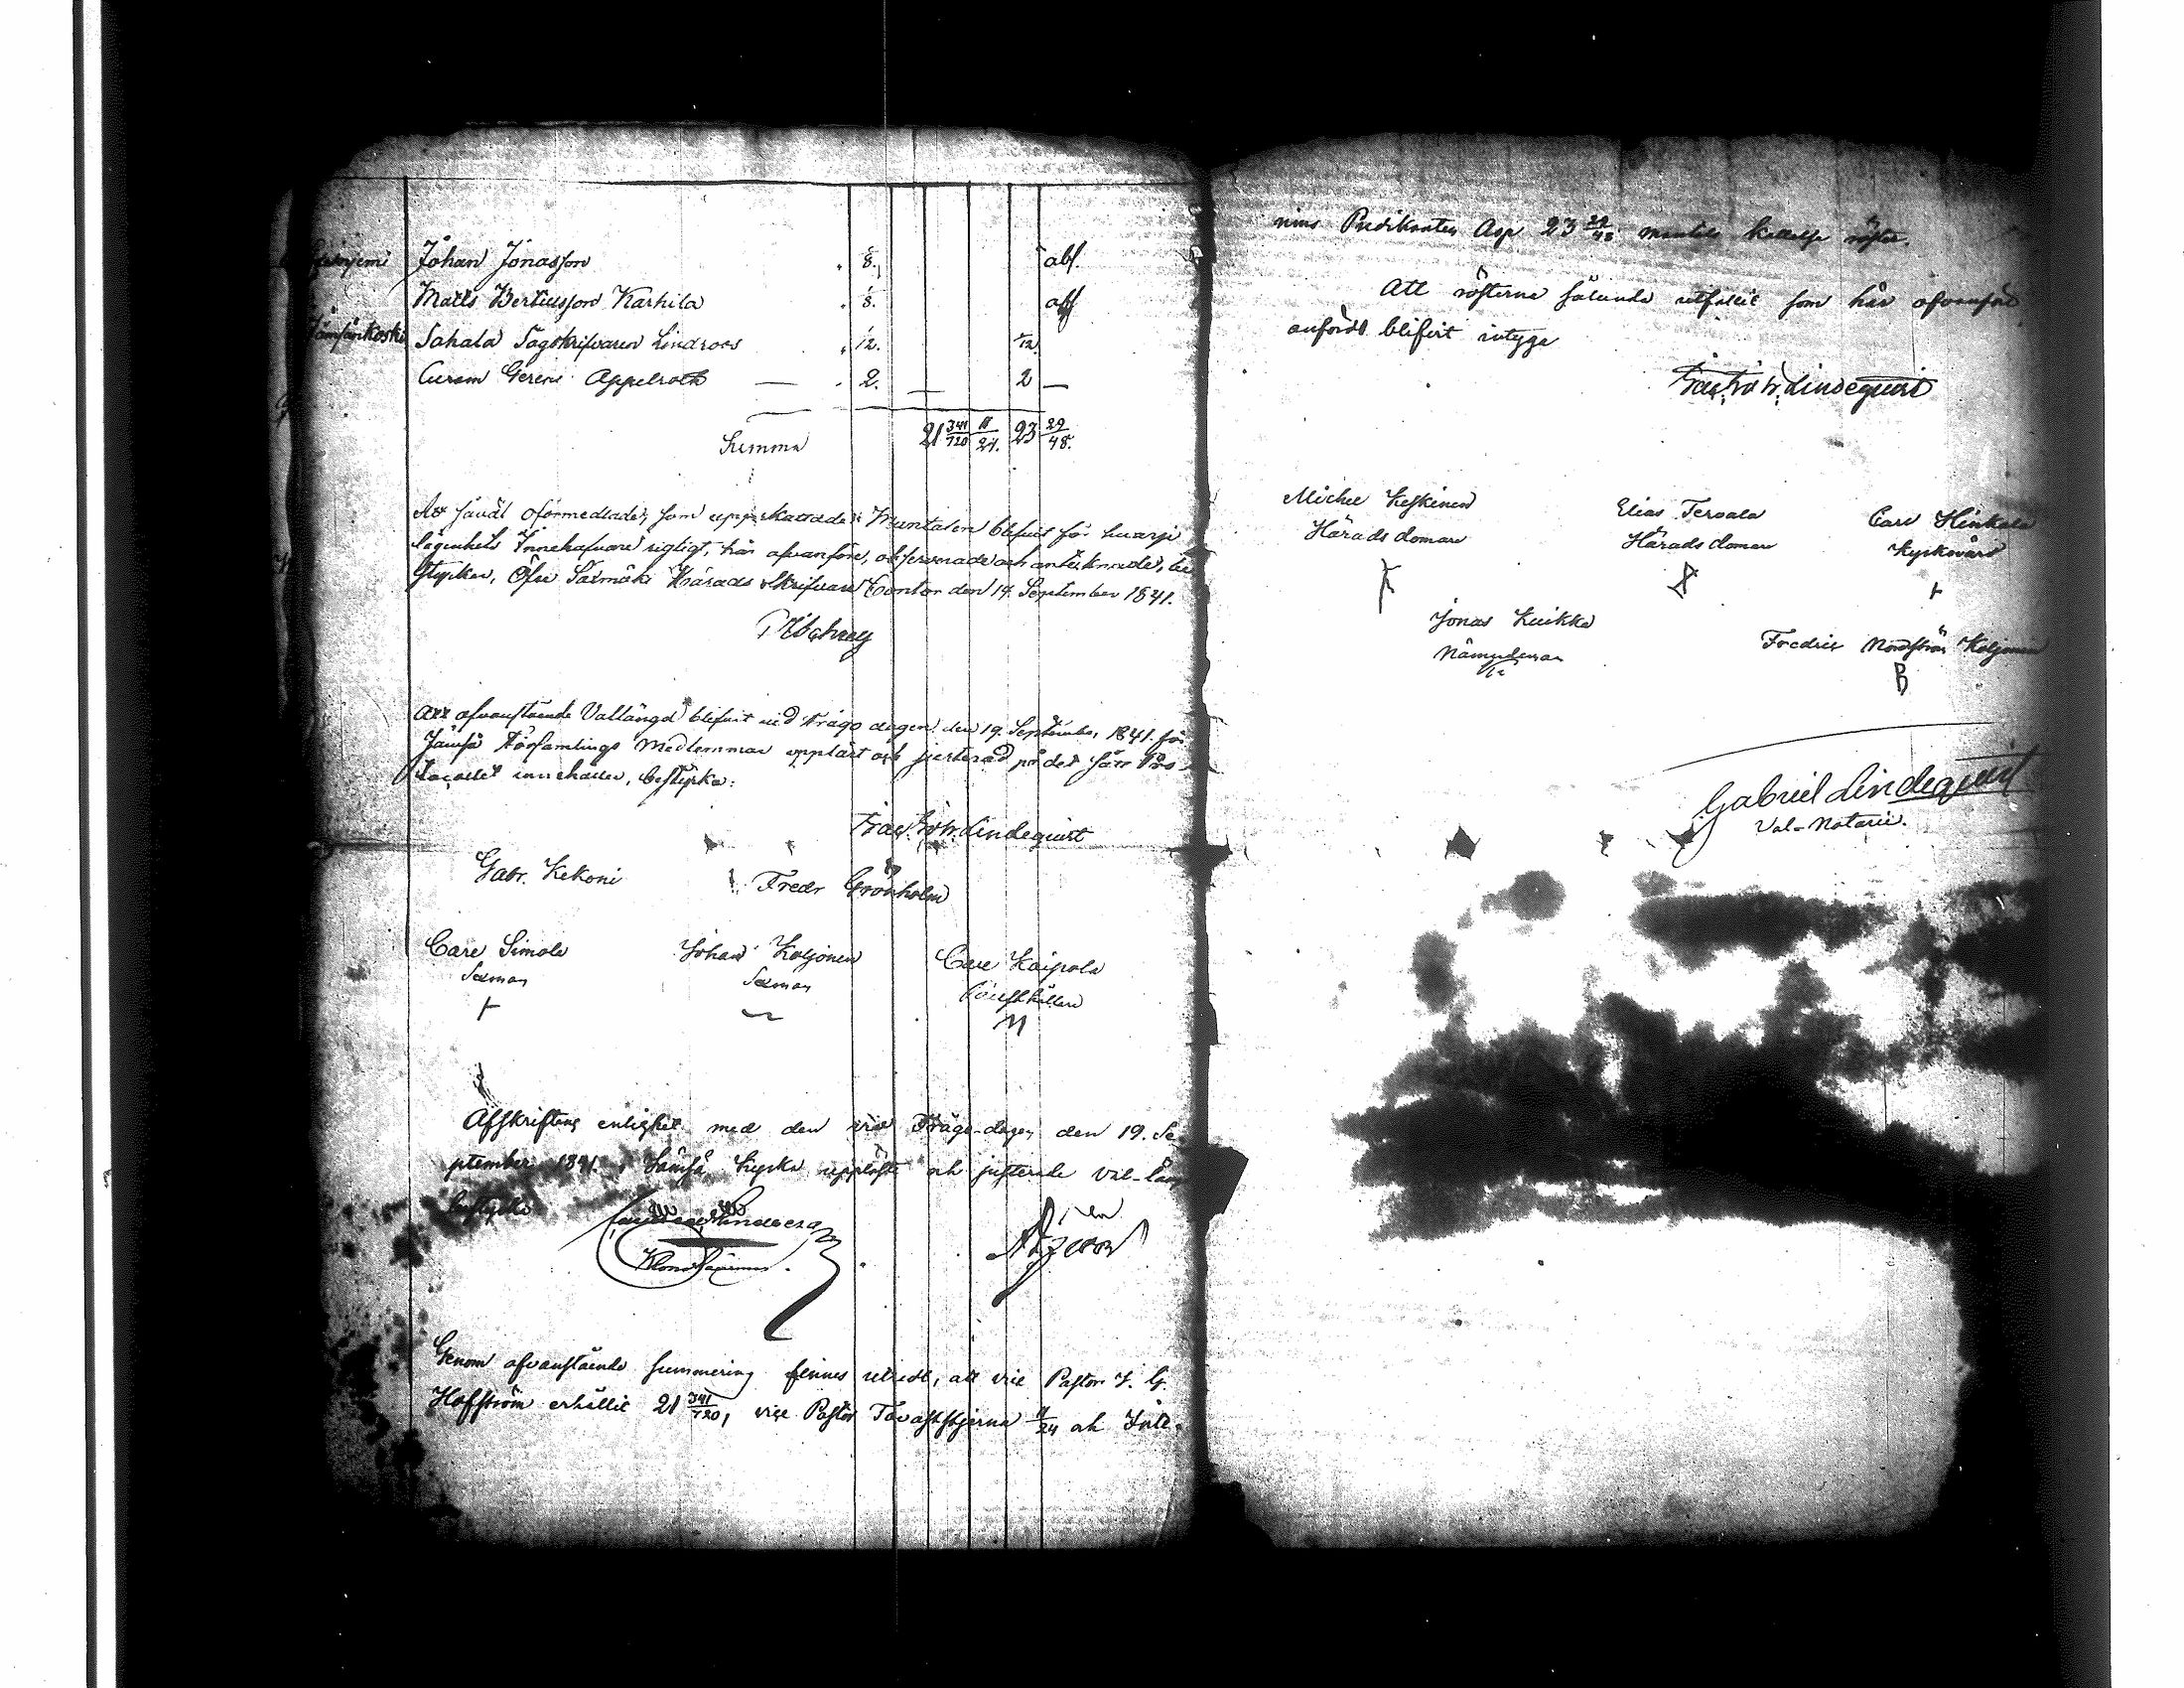 Johan Jonasson 1/8. abs.
Matts Bertilsson Karhila 1/8. abs
Jämsänkoski Sahala Sågskrifvaren Lindroos 1/12. 1/12.
Appelroth — 2. — 2 —
Summa 21 341/720 11/24. 23 29/48.
Att såväl oförmedlade, som uppskattade Mantalen blifvit för hvarje
lägenhets Innehafvare rigtigt, här ofvanföre, observerade och antecknade, be-
styrker, Öfre Satmäki Härads Skrifvare Contor den 14. September 1841.
Att ofvanstående Vallängd blifvit vid Frågo dagen den 19. September 1841. för
Jämsä Församlings Medlemmar uppläst och justerad på det sätt Pro-
tocollet innehåller, bestyrka:
Lindequist
Gabr. Kekoni Fredr Grönholm
Carl Simola Johan Koljonen Carl Kaipola
Sexman Sexman
Afskriftens enlighet med den vid Frågo-dagen den 19. Se-
ptember 1841. i Jämsä Kyrka upplästa och justerade Val-läng
bestyrka
Genom ofvanstående summering finnes utredt, att vice Pastor J. G.
Hoffström erhållit 21 341/720, vice Pastor Tavaststjerna 11/24 och
Predikanten Asp 23 29/48 mantals kallelse röster.
Att rösterna sålunda utfallit som här ofvanföre
anfördt blifvit intyga
Lindequist
Michel Keskinen Elias Tervala Carl Hinkala
Härads domare Härads domare Kyrkvärd
Jonas Kuikka Fredric Nordström Koljonen
Nämndeman
Gabriel Lindequist
Val-Notarie.